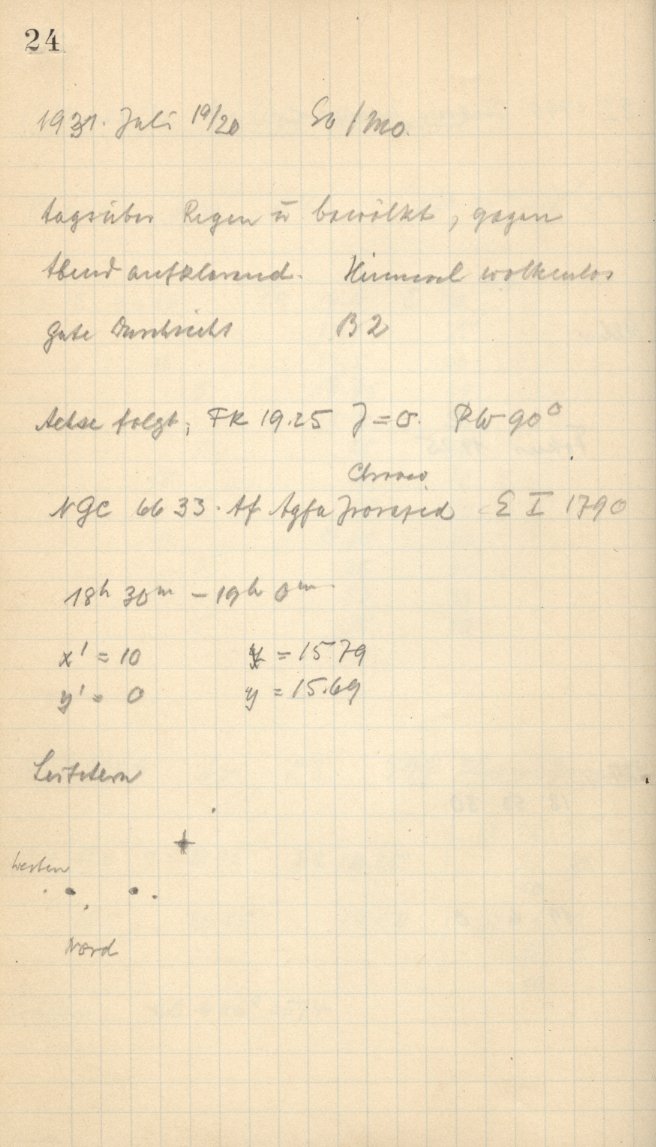 24
1931. Juli 19/20 So/Mo.
tagsüber Regen u bewölkt, gegen
Abend aufklarend. Himmel wolkenlos
gute Durchsicht B 2
Achse folgt, FK 19.25 J = 0. PW 90°
Chromo
NGC 6633. Af Agfa Isorapid E I 1790
18h 30m – 19h 0m.
x' = 10 x = 15 79
y' = 0 y = 15.69
Leitstern
Westen
Nord